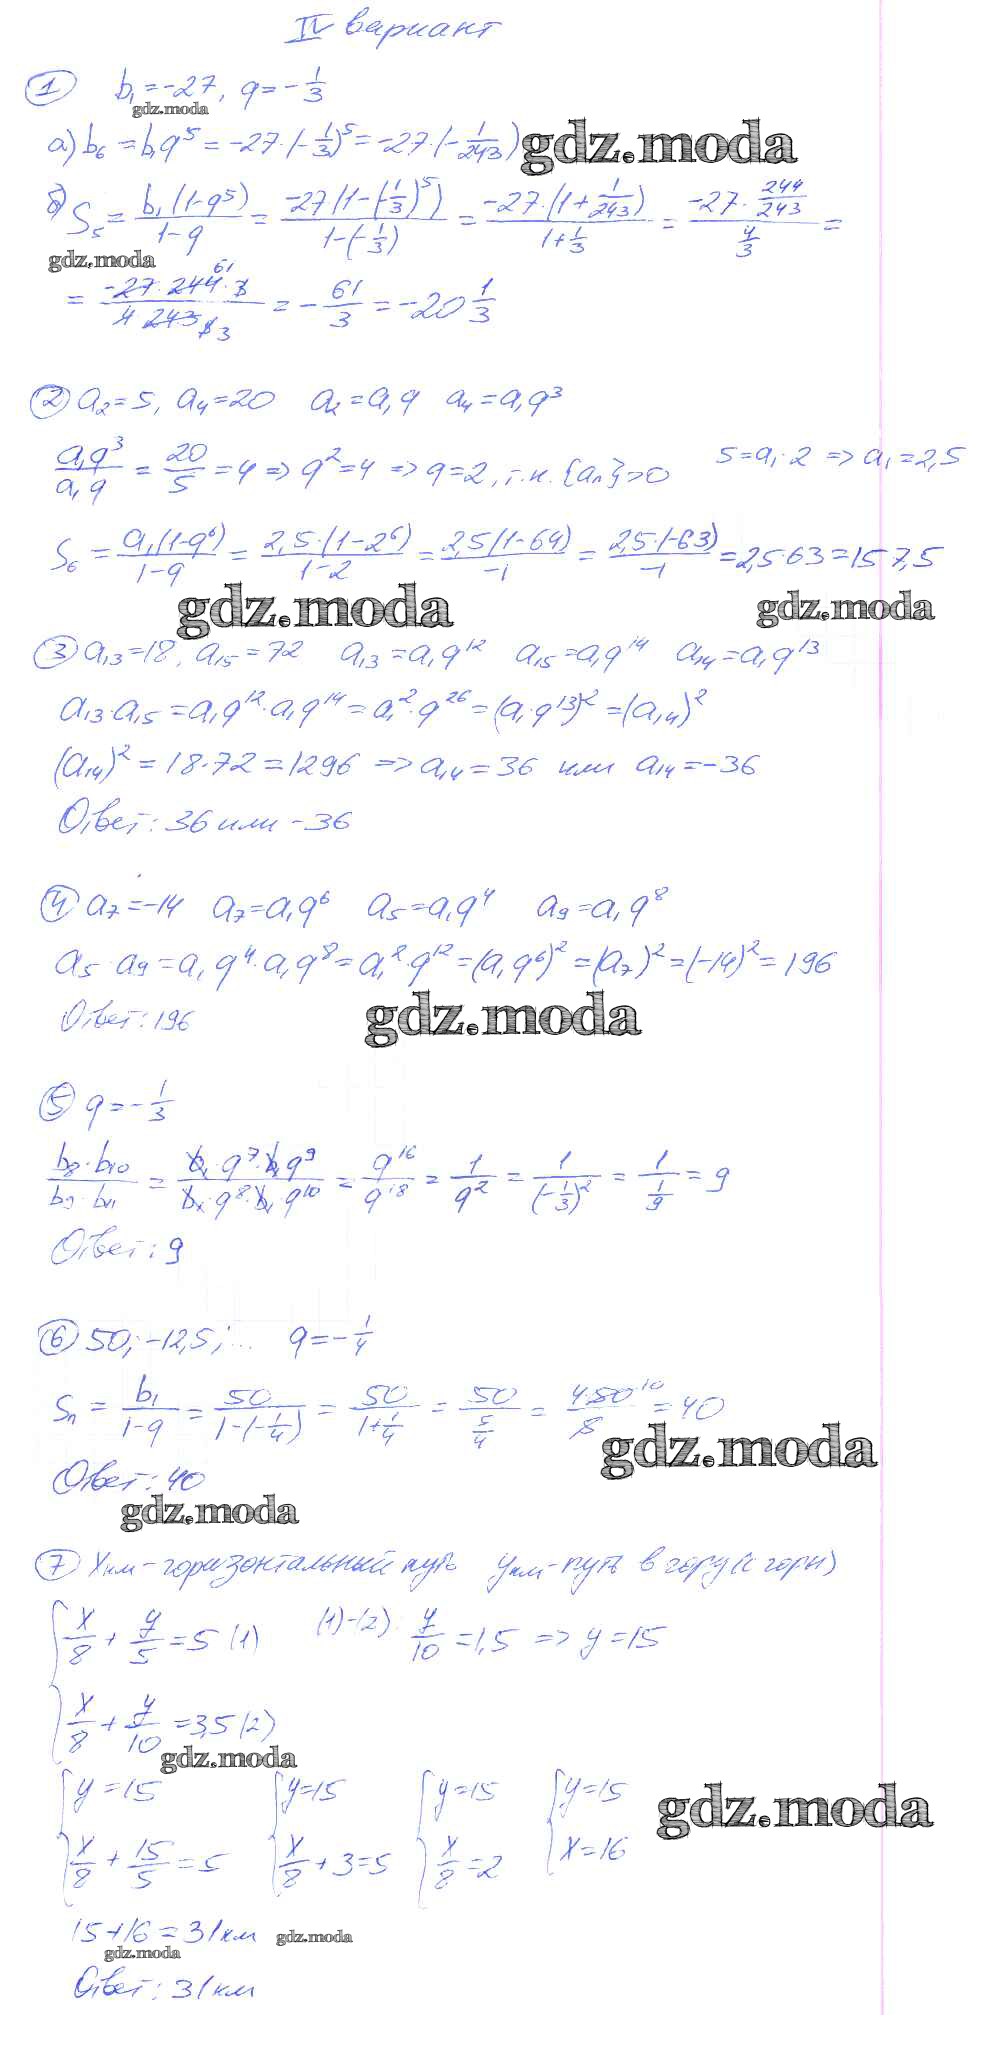 IV вариант
① b₁=-27, q=-1/3
gdz.moda
а) b₆=b₁q⁵=-27·(-1/3)⁵=-27·(-1/243) gdz.moda
б) S₅=b₁(1-q⁵)/(1-q)=-27(1-(-1/3)⁵)/(1-(-1/3))=-27·(1+1/243)/(1+1/3)=(-27·244/243)/(4/3)=
gdz.moda
=-27·244·3/(4·243·1)=-61/3=-20 1/3
② a₂=5, a₄=20 a₂=a₁q a₄=a₁q³
a₁q³/a₁q=20/5=4=>q²=4=>q=2, т.к. {aₙ}>0 5=a₁·2=>a₁=2,5
S₆=a₁(1-q⁶)/(1-q)=2,5·(1-2⁶)/(1-2)=2,5(1-64)/-1=2,5·(-63)/-1=2,5·63=157,5
gdz.moda gdz.moda
③ a₁₃=18, a₁₅=72 a₁₃=a₁q¹² a₁₅=a₁q¹⁴ a₁₄=a₁q¹³
a₁₃·a₁₅=a₁q¹²·a₁q¹⁴=a₁²·q²⁶=(a₁·q¹³)²=(a₁₄)²
(a₁₄)²=18·72=1296 =>a₁₄=36 или a₁₄=-36
Ответ: 36 или -36
④ a₇=-14 a₇=a₁q⁶ a₅=a₁q⁴ a₉=a₁q⁸
a₅·a₉=a₁q⁴·a₁q⁸=a₁²·q¹²=(a₁q⁶)²=(a₇)²=(-14)²=196
Ответ: 196
gdz.moda
⑤ q=-1/3
b₈·b₁₀/b₉·b₁₁=b₁·q⁷·b₁q⁹/b₁·q⁸·b₁q¹⁰=q¹⁶/q¹⁸=1/q²=1/(-1/3)²=1/(1/9)=9
Ответ: 9
⑥ 50; -12,5; ... q=-1/4
Sₙ=b₁/(1-q)=50/(1-(-1/4))=50/(1+1/4)=50/(5/4)=4·50/5=40
gdz.moda
Ответ: 40
gdz.moda
⑦ Xкм-горизонтальный путь yкм-путь в гору(с горы)
{x/8+y/5=5 (1) (1)-(2): y/10=1,5 => y=15
x/8+y/10=3,5 (2)
gdz.moda
{y=15 {y=15 {y=15 {y=15
gdz.moda
x/8+15/5=5 x/8+3=5 x/8=2 x=16
15+16=31км gdz.moda
gdz.moda
Ответ: 31км